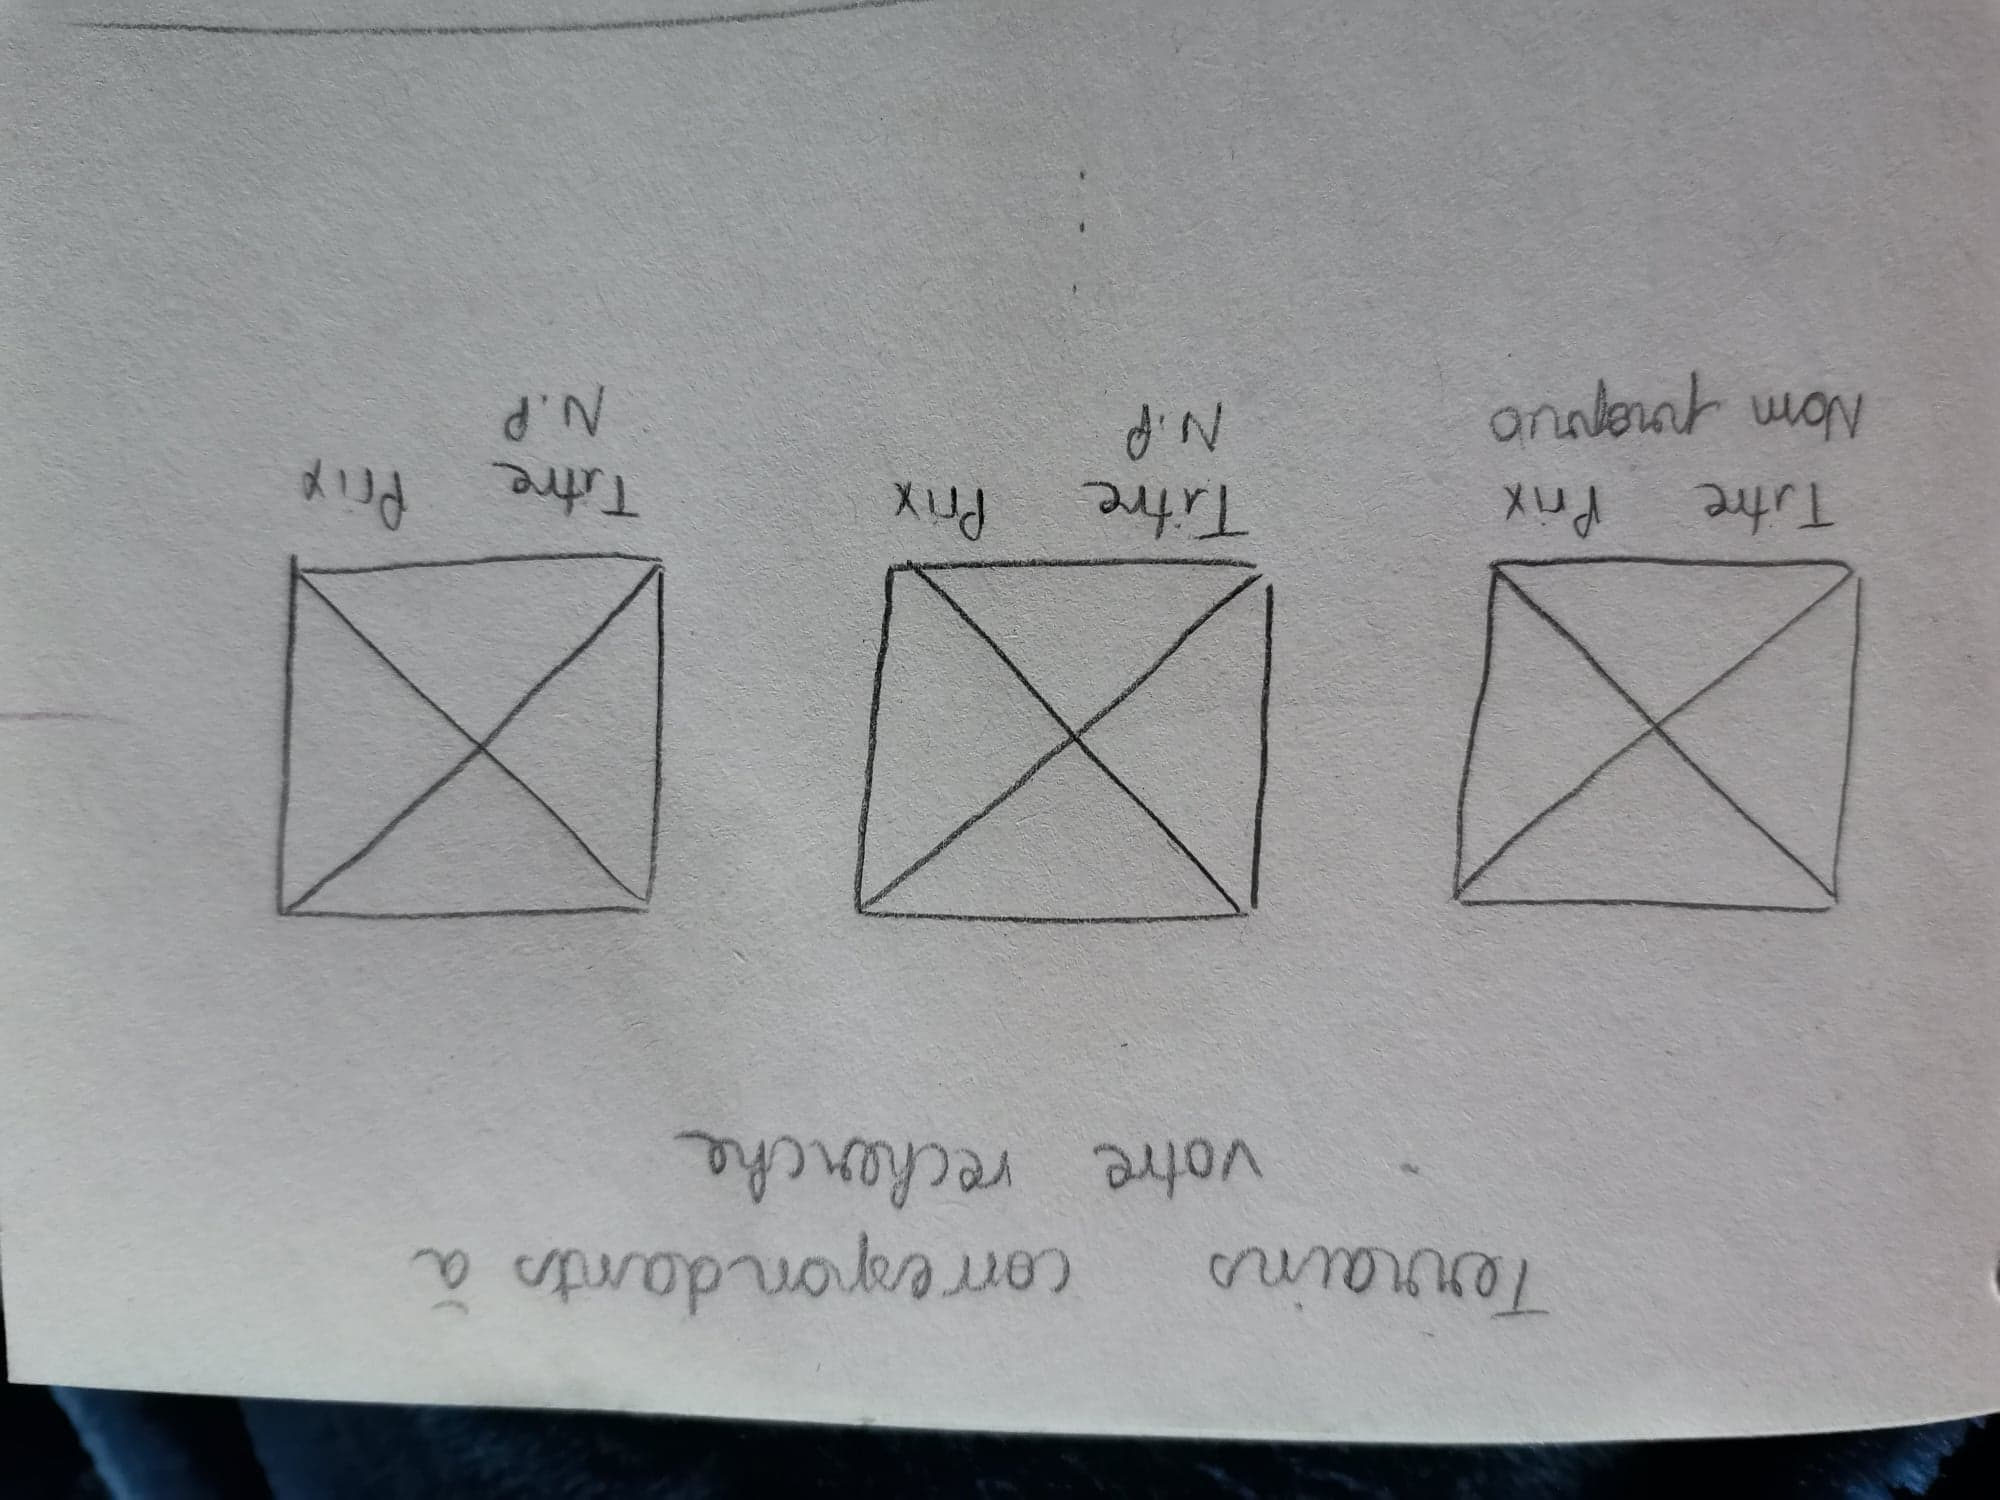 Terrains correspondants à
votre recherche
Titre Prix
Nom proprio
Titre Prix
N.P
Titre Prix
N.P